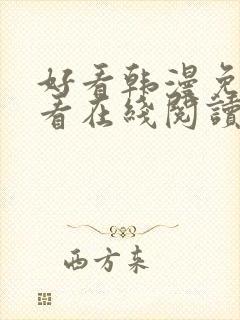 好看韩漫免
看在线阅读
西方来